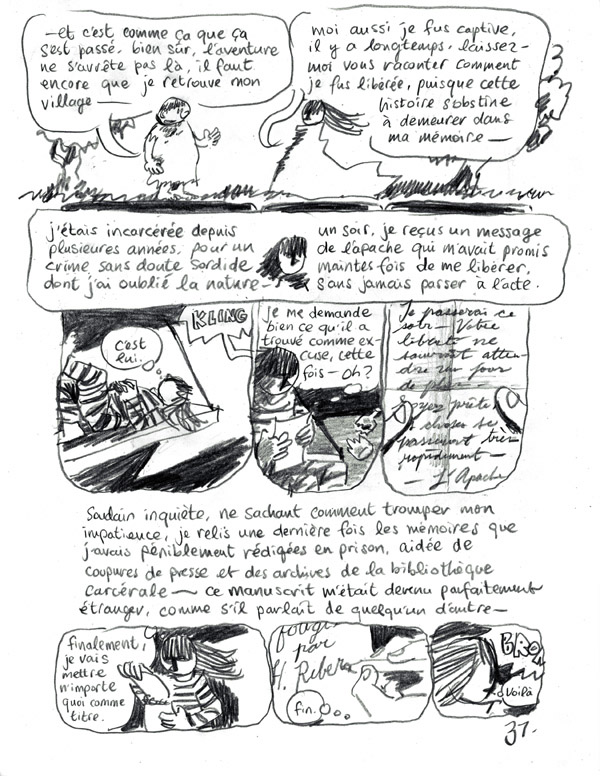 — et c'est comme ça que ça
s'est passé. bien sûr, l'aventure
ne s'arrête pas là, il faut
encore que je retrouve mon
village —
moi aussi je fus captive,
il y a longtemps. laissez-
moi vous raconter comment
je fus libérée, puisque cette
histoire s'obstine
à demeurer dans
ma mémoire —
j'étais incarcérée depuis
plusieures années, pour un
crime sans doute sordide
dont j'ai oublié la nature —
un soir, je reçus un message
de l'apache qui m'avait promis
maintes fois de me libérer,
sans jamais passer à l'acte.
KLING
c'est
lui.
je me demande
bien ce qu'il a
trouvé comme ex-
cuse, cette
fois — oh?
Je passerai ce
soir — Votre
liberté ne
saurait atten-
dre un jour
de plus —
Soyez prête
les choses se
passeront très
rapidement —
— L'Apache
Soudain inquiète, ne sachant comment tromper mon
impatience, je relis une dernière fois les mémoires que
j'avais péniblement rédigées en prison, aidée de
coupures de presse et des archives de la bibliothèque
carcérale — ce manuscrit m'était devenu parfaitement
étranger, comme s'il parlait de quelqu'un d'autre —
finalement,
je vais
mettre
n'importe
quoi comme
titre.
par
H. Ribera
fin.
BRO
Voilà
37.